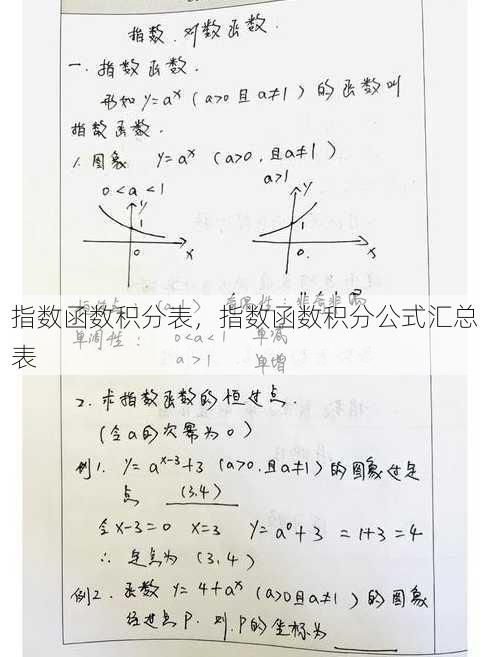 指数、对数函数.
一. 指数函数.
形如 y=aˣ (a>0 且 a≠1) 的函数叫
指数函数.
1. 图象 y=aˣ (a>0, 且a≠1)
0<a<1 a>1
y y
1 1
0 x 0. x
奇偶性: 非奇非偶
指数函数积分表，指数函数积分公式汇总
表
单调性: 0<a<1 单减
a>1 单增
2. 求指数函数的恒过点.
(令a的次幂为0)
例1. y= aˣ⁻³+3 (a>0, 且a≠1) 的图象过定
点 (3,4)
令x-3=0 x=3 y=a⁰+3 =1+3=4
∴ 定点为 (3,4)
例2. 函数 y= 4+aˣ (a>0且a≠1) 的图象
经过点P. 则P的坐标为